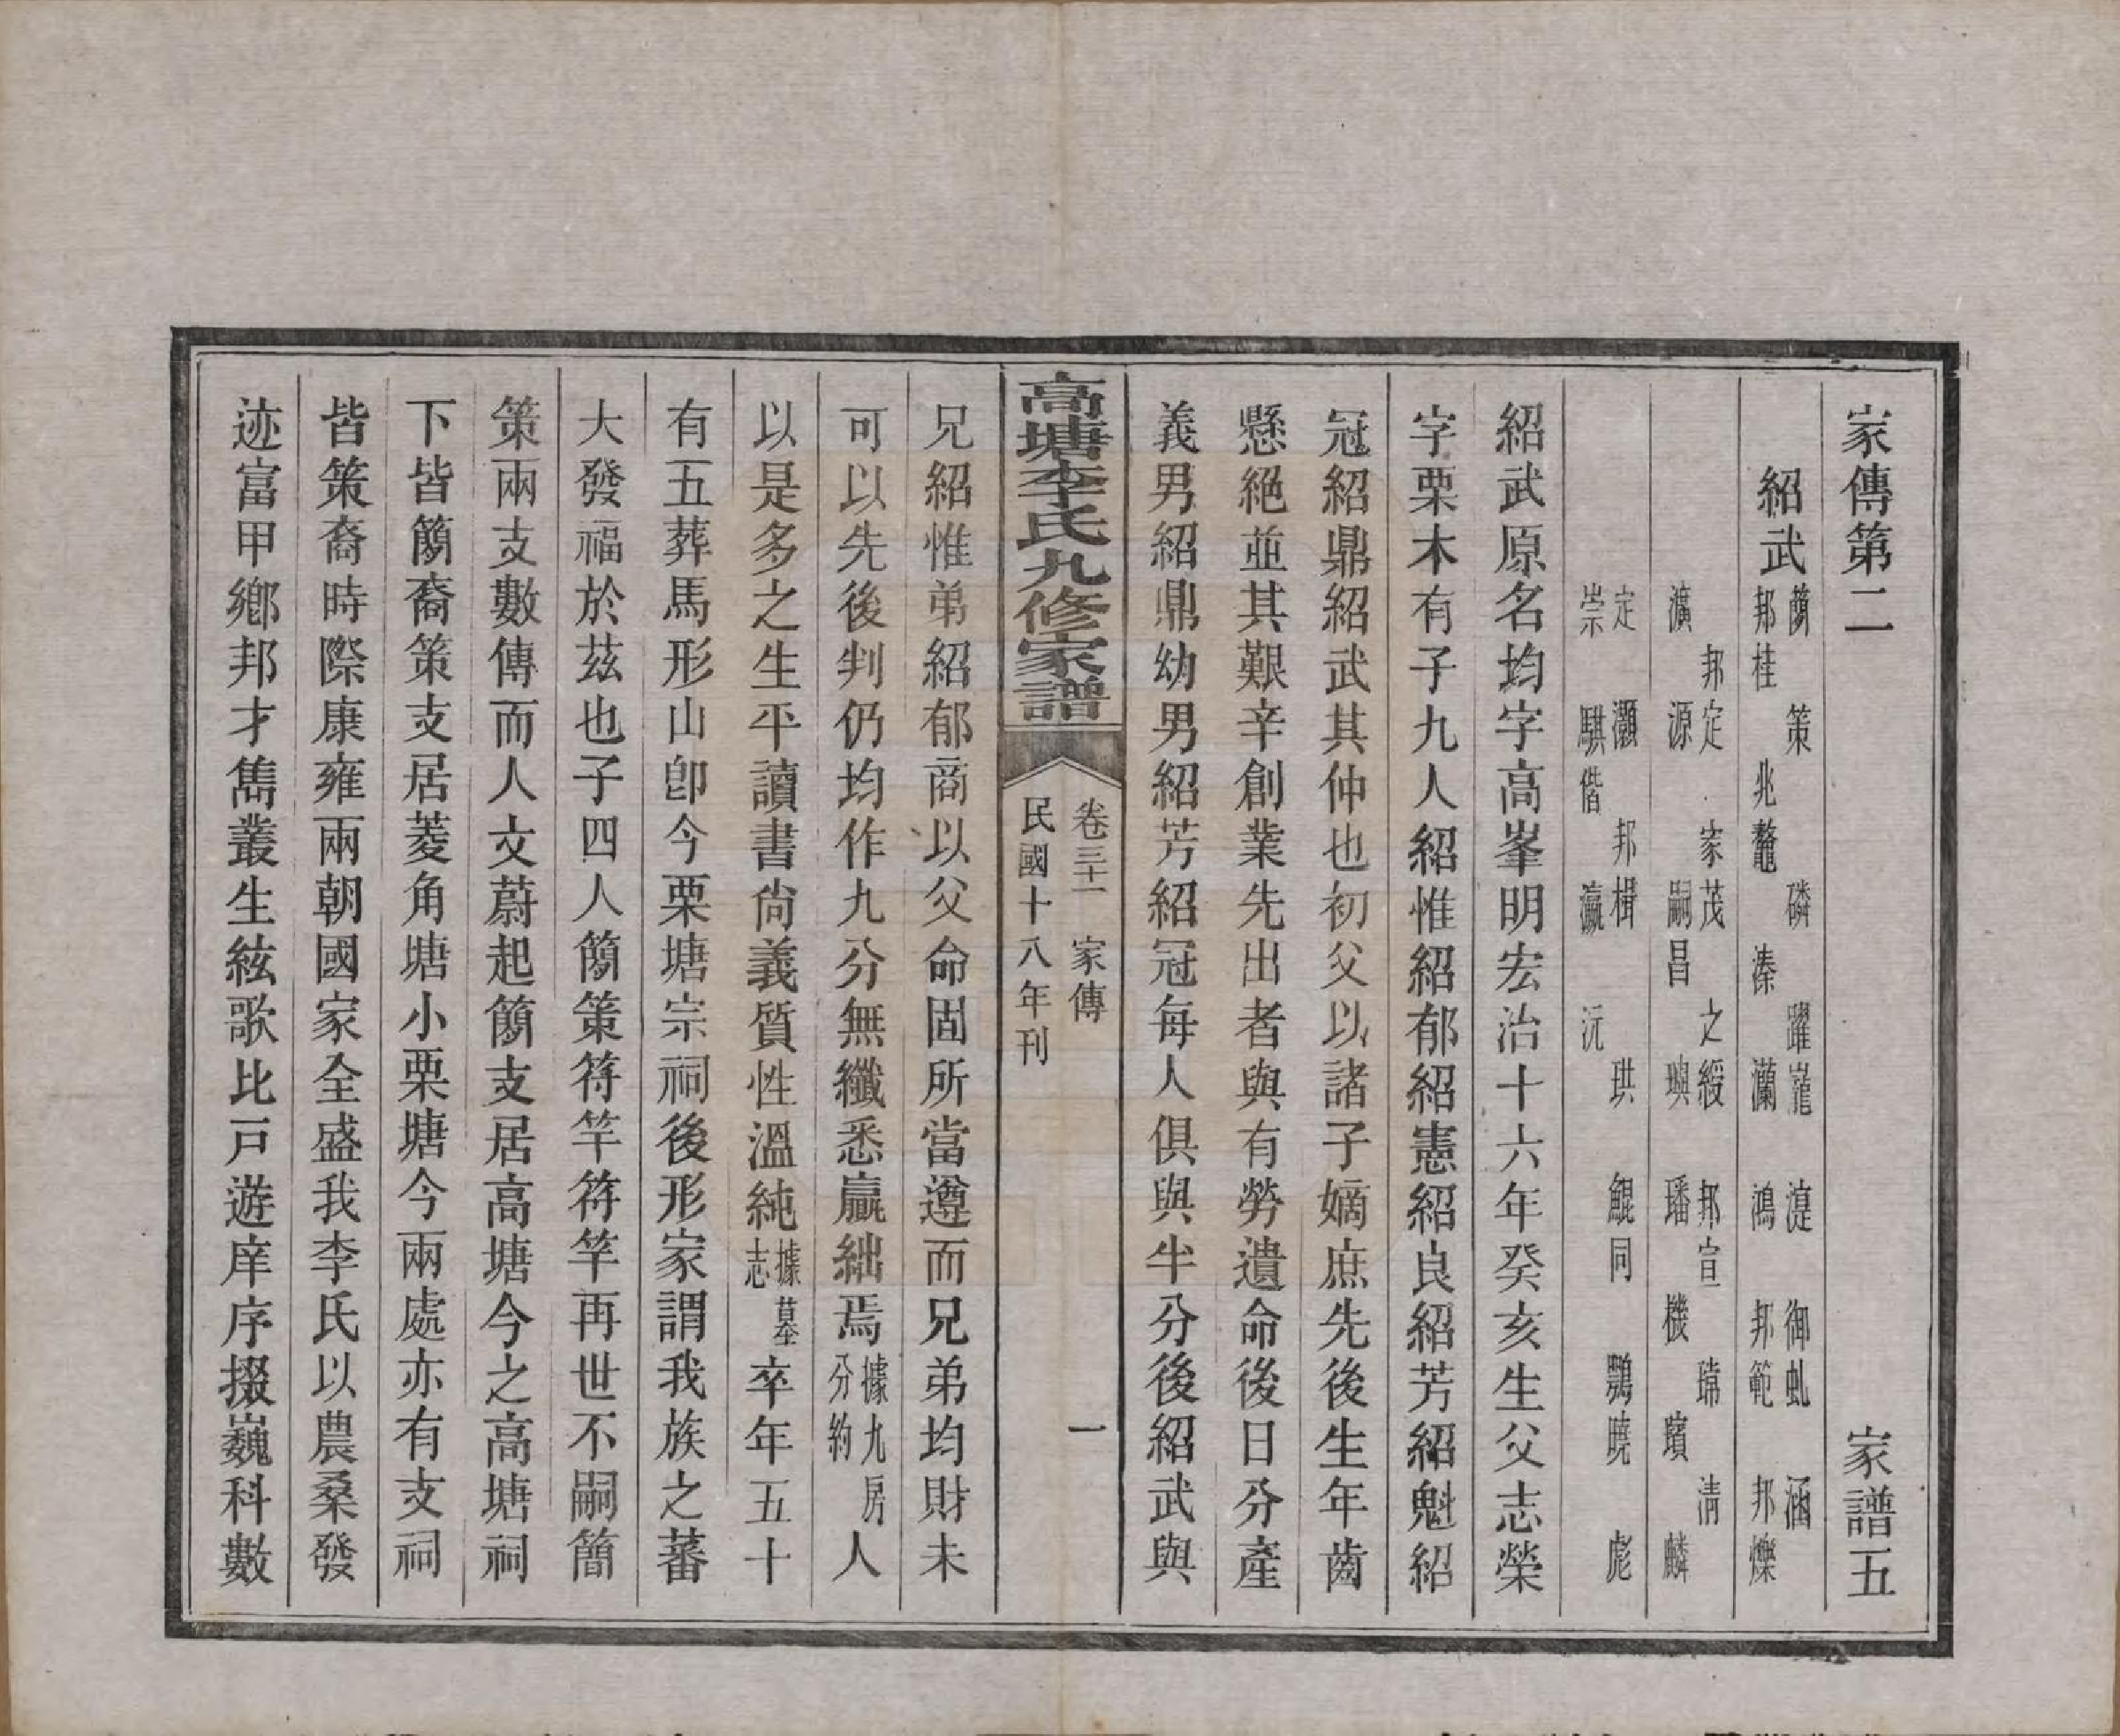 家傳第二　家譜五
紹武　蕳　策　磷　躍巃　湜　御虬　涵
邦桂　兆鼇　溱　瀾　鴻　邦範　邦爍
邦定　家茂　之綬　邦宣　瑞　清
瀇　源　嗣昌　璵　璠　機　璸　麟
定　灝　邦楫　珙　鯤同　鸚曉　彪
崇　騏偕　瀛　沅
紹武原名均字高峯明宏治十六年癸亥生父志榮
字栗木有子九人紹惟紹郁紹憲紹良紹芳紹魁紹
冠紹鼎紹武其仲也初父以諸子嫡庶先後生年齒
懸絕並其艱辛創業先出者與有勞遺命後日分產
義男紹鼎幼男紹芳紹冠每人俱與半分後紹武與
高塘李氏九修家譜
卷三十一　家傳　一
民國十八年刊
兄紹惟弟紹郁商以父命固所當遵而兄弟均財未
可以先後判仍均作九分無纖悉贏絀焉據九房分約人
以是多之生平讀書尙義質性溫純據墓志卒年五十
有五葬馬形山卽今栗塘宗祠後形家謂我族之蕃
大發福於茲也子四人簡策符竿符竿再世不嗣簡
策兩支數傳而人文蔚起簡支居高塘今之高塘祠
下皆簡裔策支居菱角塘小栗塘今兩處亦有支祠
皆策裔時際康雍兩朝國家全盛我李氏以農桑發
迹富甲鄉邦才雋叢生絃歌比戶遊庠序掇巍科數